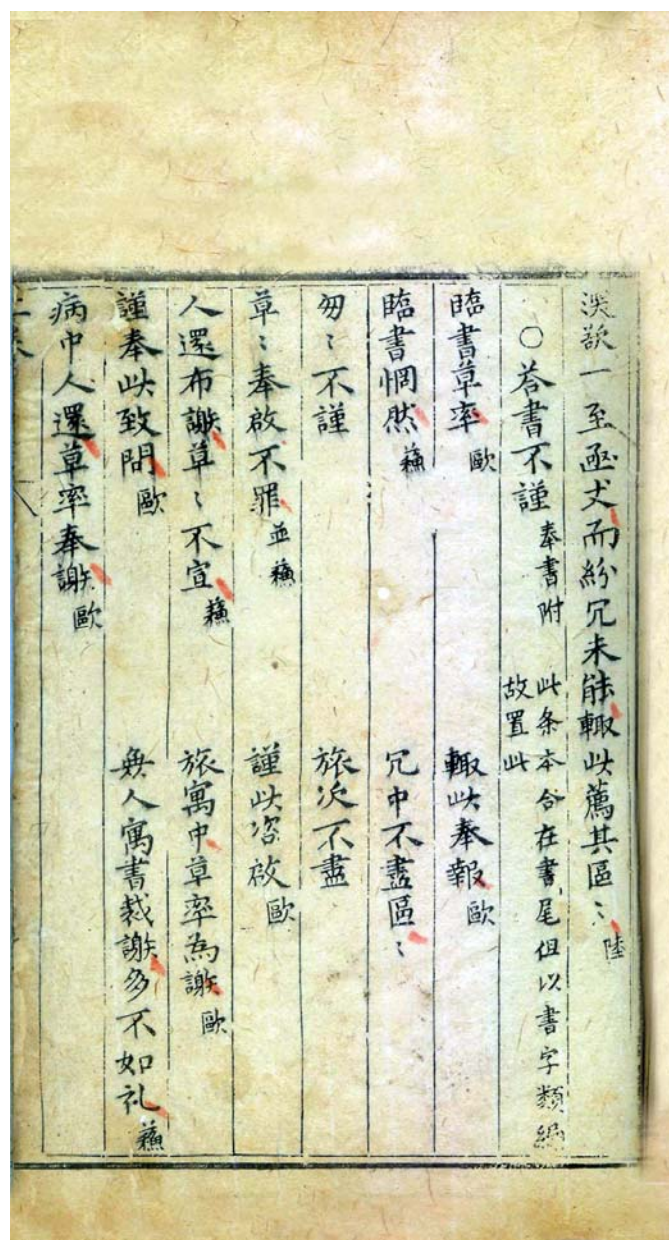 深欲一至亟丈而紛冗未能輙此薦其區〻陸
○荅書不謹 奉書附 此条本合在書尾但以書字類編故置此
臨書草率 歐 輙此奉報 歐
臨書惘然 蘓 冗中不盡區〻
匆〻不謹 旅次不盡
草〻奉啟不罪 並蘓 謹此咨啟 歐
人還布謝草〻不宣 蘓 旅寓中草率為謝 歐
謹奉此致問 歐 無人寓書裁謝多不如礼 蘓
病中人還草率奉謝 歐